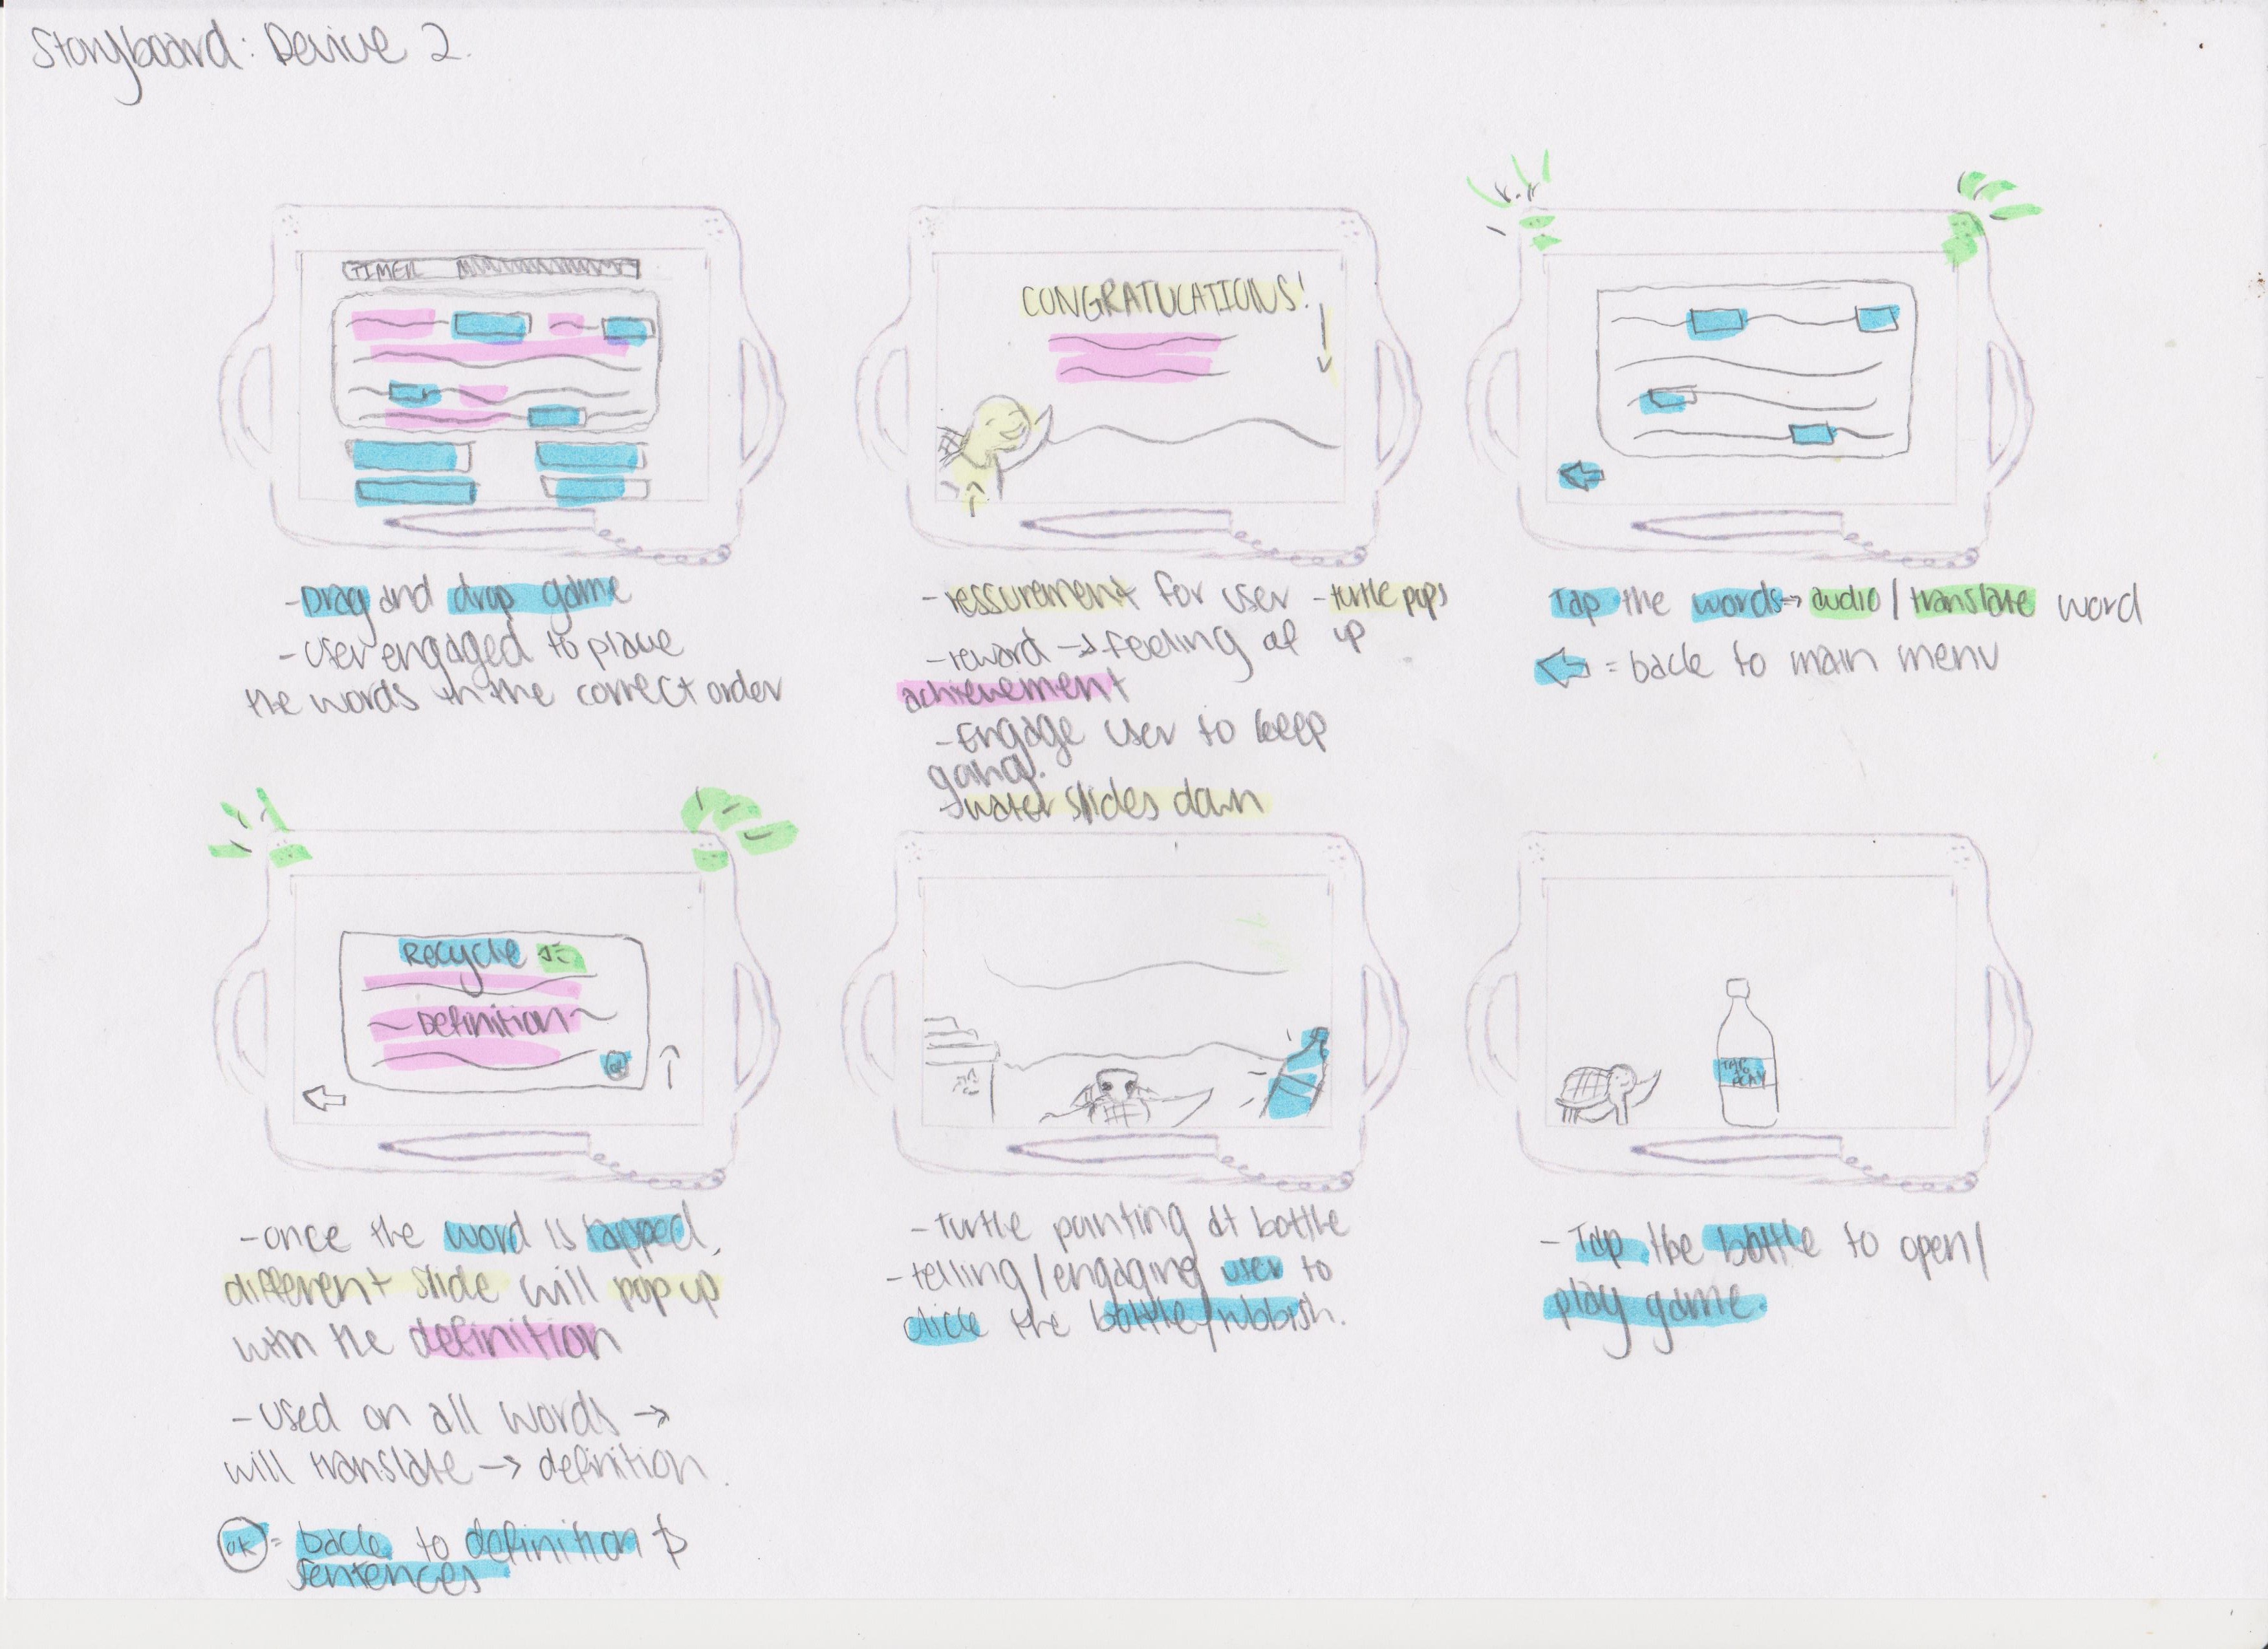 Storyboard: Device 2.
TIMER
- Drag and drop game
- User engaged to place
the words in the correct order
CONGRATULATIONS!
- ressurement for user - turtle pops
up
- reward → feeling of
achievement
- Engage user to keep
going.
- water slides down
Tap the words → audio / translate word
⇐ = back to main menu
Recycle
Definition
ok
- once the word is tapped,
different slide will pop up
with the definition
- Used on all words →
will translate → definition.
ok = back to definition &
sentences
- Turtle pointing at bottle
- telling / engaging user to
click the bottle/rubbish.
PLAY
- Tap the bottle to open/
play game.